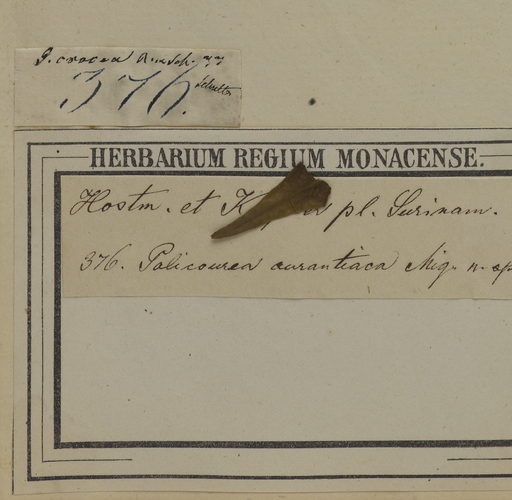 P. crocea R. et Sch. ??
Schultes
376.
HERBARIUM REGIUM MONACENSE.
Hostm. et K pl. Surinam.
376. Palicourea aurantiaca Miq. n. sp